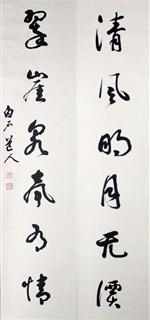 清風明月无價
翠崖泉有情
白石道人